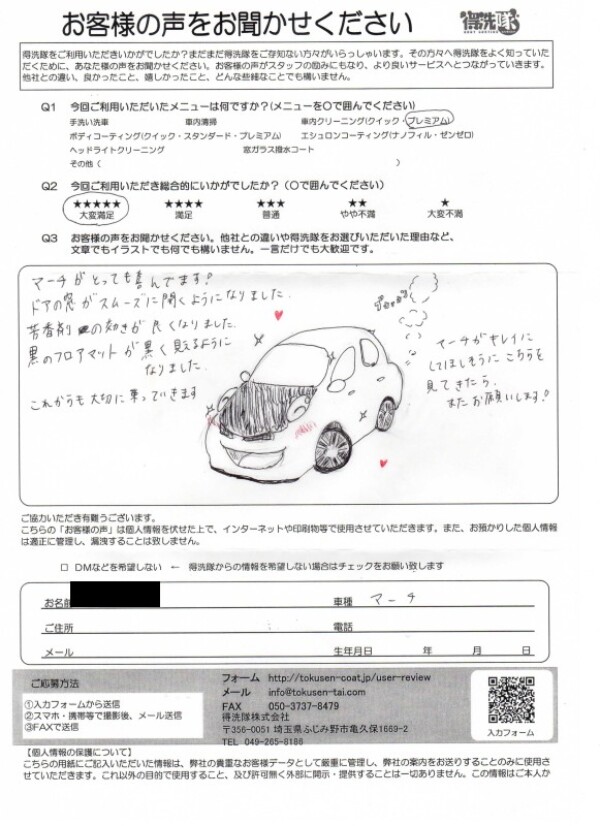 お客様の声をお聞かせください
得洗隊
得洗隊をご利用いただきいかがでしたか？まだまだ得洗隊をご存知ない方々がいらっしゃいます。その方々へ得洗隊をよく知っていた
だくために、あなた様の声をお聞かせください。お客様の声がスタッフの励みにもなり、より良いサービスへとつながっていきます。
他社との違い、良かったこと、嬉しかったこと、どんな些細なことでも構いません。
Q1 今回ご利用いただいたメニューは何ですか？(メニューを〇で囲んでください)
手洗い洗車 車内清掃 車内クリーニング(クイック・プレミアム)
ボディコーティング(クイック・スタンダード・プレミアム) エシュロンコーティング(ナノフィル・ゼンゼロ)
ヘッドライトクリーニング 窓ガラス撥水コート
その他 ( )
Q2 今回ご利用いただき総合的にいかがでしたか？（〇で囲んでください）
★★★★★ ★★★★ ★★★ ★★ ★
大変満足 満足 普通 やや不満 大変不満
Q3 お客様の声をお聞かせください。他社との違いや得洗隊をお選びいただいた理由など、
文章でもイラストでも何でも構いません。一言だけでも大歓迎です。
マーチがとっても喜んでます！
ドアの窓がスムーズに開くようになりました.
芳香剤の効きが良くなりました.
黒のフロアマットが黒く見えるように
なりました.
これからも大切に乗っていきます
マーチがキレイに
してほしそうにこちらを
見てきたら.
またお願いします！
ご協力いただき有難うございます。
こちらの「お客様の声」は個人情報を伏せた上で、インターネットや印刷物等で使用させていただきます。また、お預かりした個人情報
は適正に管理し、漏洩することは致しません。
□ DMなどを希望しない ← 得洗隊からの情報を希望しない場合はチェックをお願い致します
お名前 車種 マーチ
ご住所 電話
メール 生年月日 年 月 日
ご応募方法
①入力フォームから送信
②スマホ・携帯等で撮影後、メール送信
③FAXで送信
フォーム http://tokusen-coat.jp/user-review
メール info@tokusen-tai.com
FAX 050-3737-8479
得洗隊株式会社
〒356-0051 埼玉県ふじみ野市亀久保1669-2
TEL 049-265-8186
入力フォーム
【個人情報の保護について】
こちらの用紙にご記入いただいた情報は、弊社の貴重なお客様データとして厳重に管理し、弊社の案内をお送りすることのみに使用さ
せていただきます。これ以外の目的で使用すること、及び許可無く外部に開示・提供することは一切ありません。この情報はご本人か